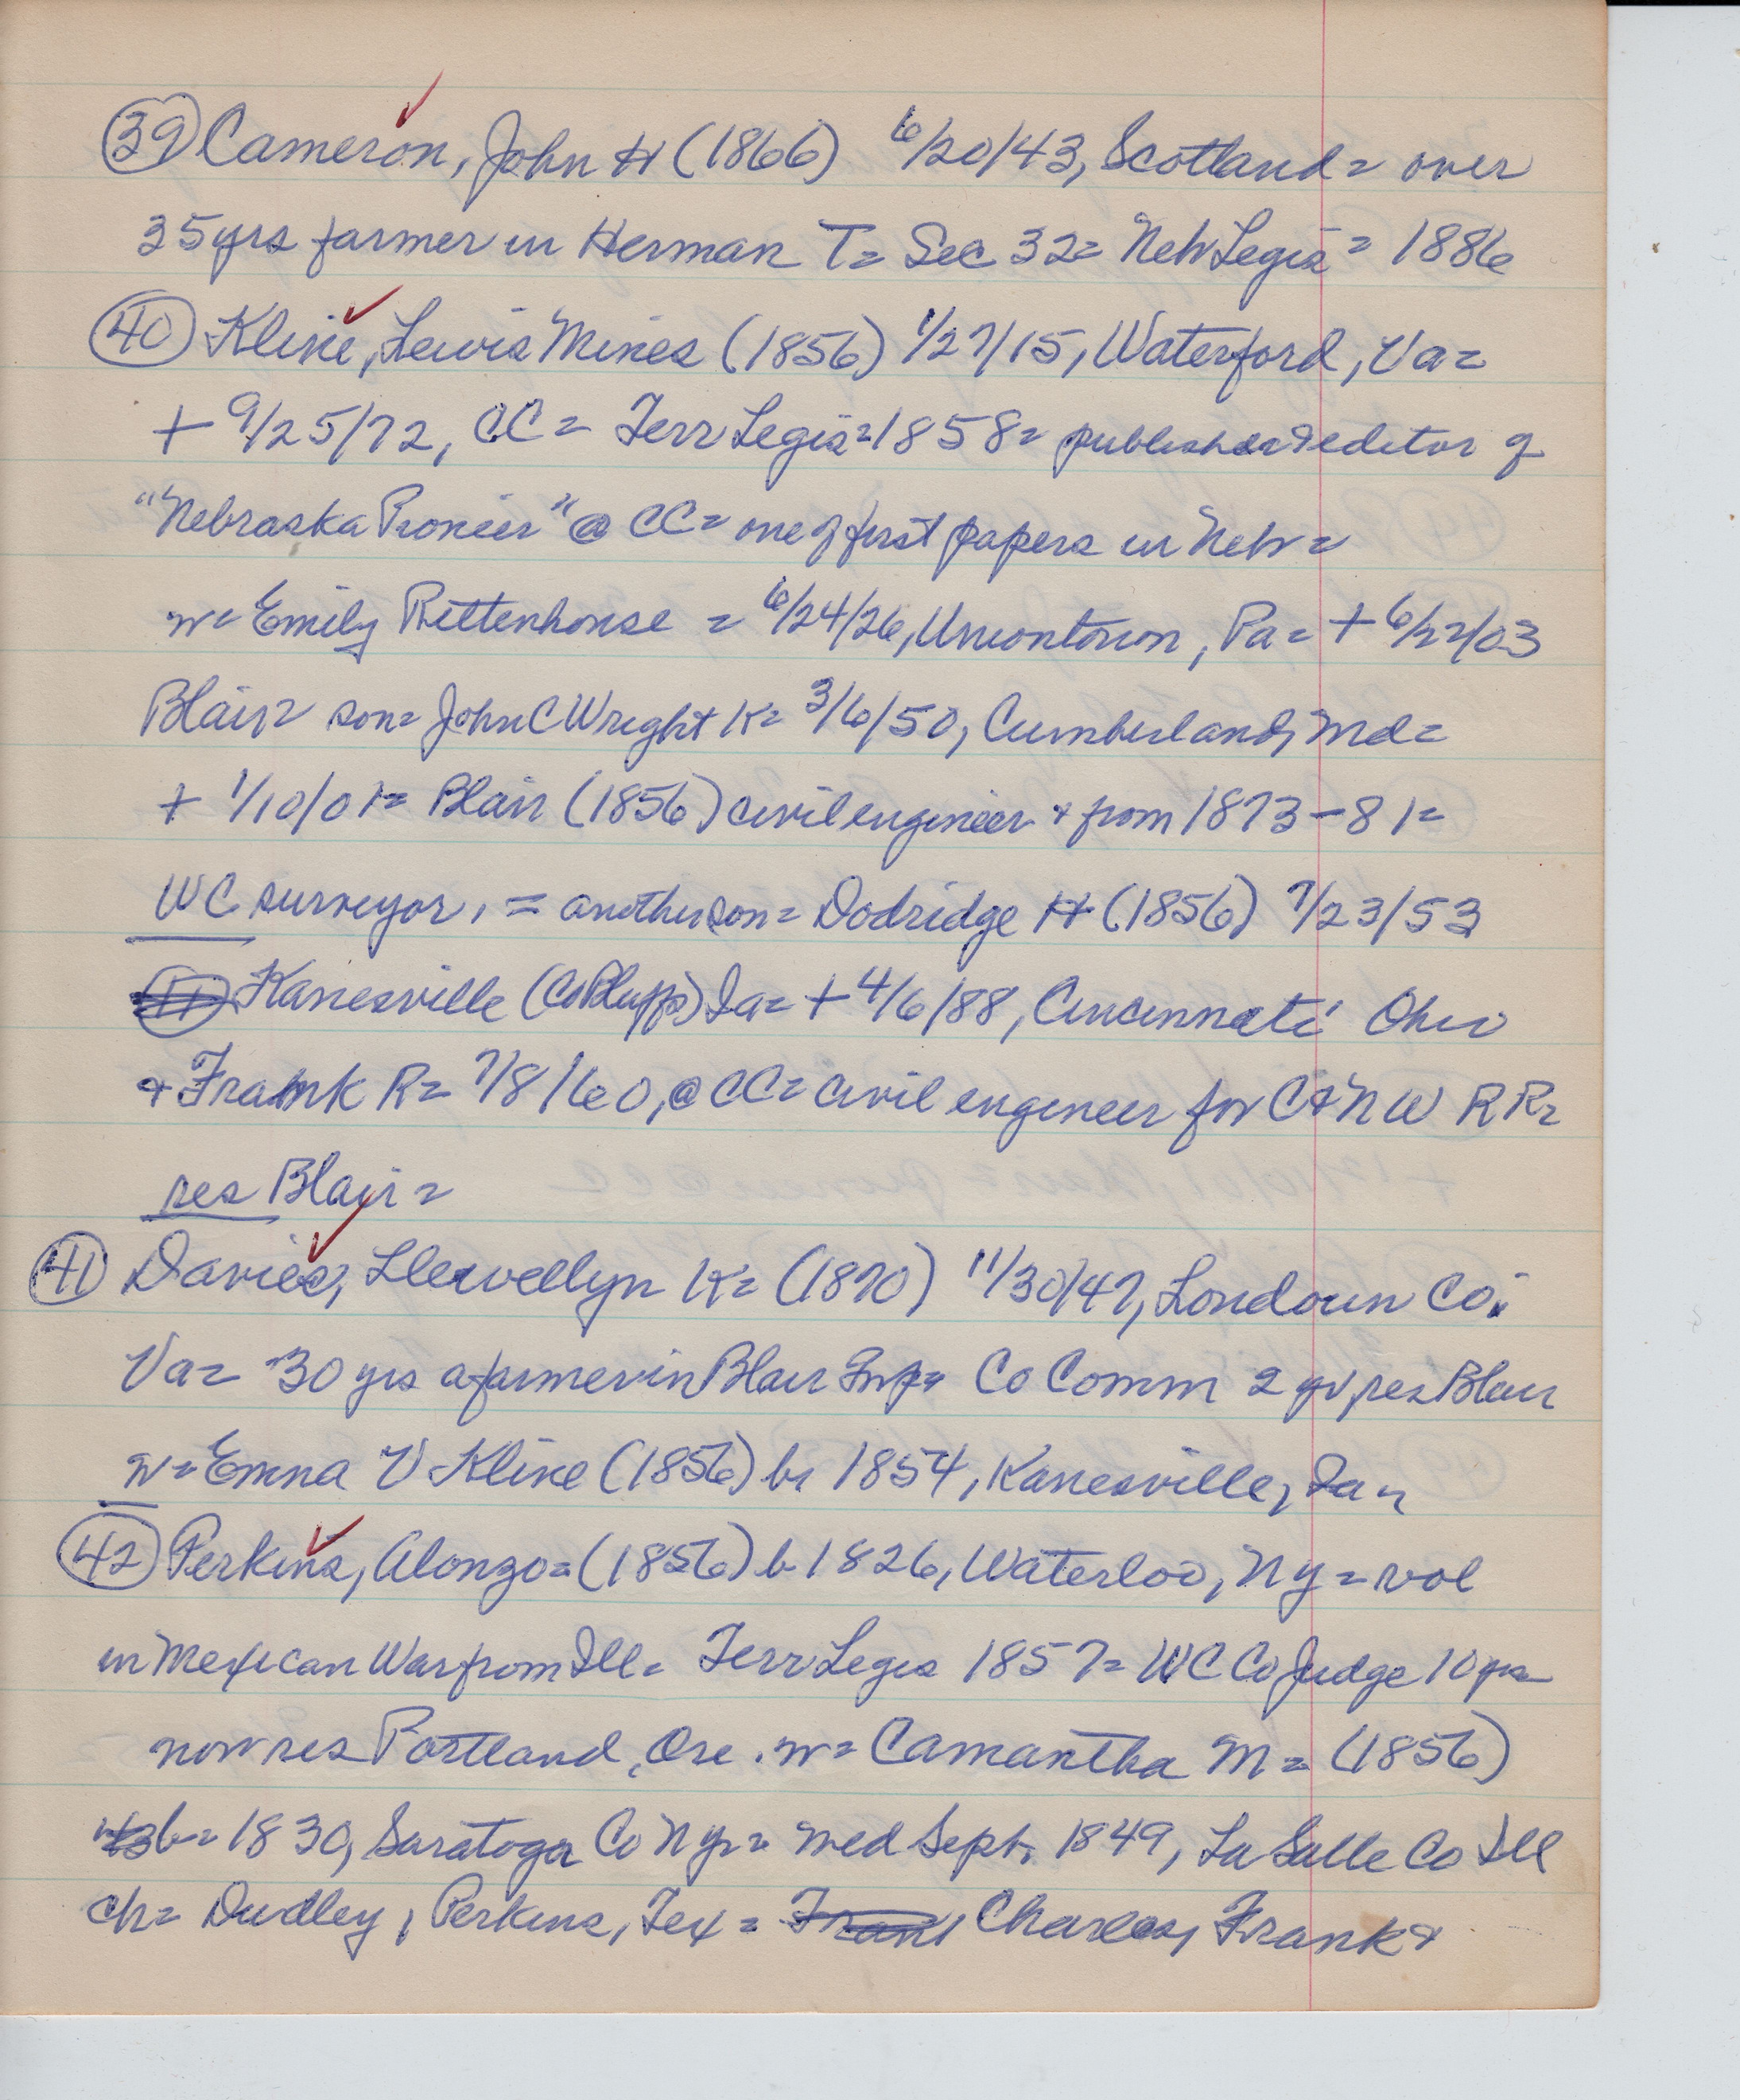 39 Cameron, John H (1866) 6/20/43, Scotland = over
35 yrs farmer in Herman T= Sec 32= Neb Legis = 1886
40 Kline, Lewis Mines (1856) 1/27/15, Waterford, Va =
+ 9/25/72, CC = Terr Legis = 1858 = publisher & editor of
"Nebraska Pioneer" @ CC = one of first papers in Neb =
w= Emily Rittenhouse = 6/24/26, Uniontown, Pa = + 6/22/03
Blair = son = John C Wright K = 3/6/50, Cumberland, Md =
+ 1/10/01= Blair (1856) civil engineer & from 1873-81=
WC surveyor, = another son = Dodridge H (1856) 7/23/53
Kanesville (Co Bluffs) Ia = + 4/6/88, Cincinnati Ohio
& Frank R = 7/8/60, @ CC = civil engineer for C & NW RR =
res Blair =
41 Davies, Llewellyn K = (1870) 11/30/47, Loudoun Co.
Va = 30 yrs a farmer in Blair Twp = Co Comm 2 yr res Blair
w= Emma V Kline (1856) b 1854, Kanesville, Ia =
42 Perkins, Alonzo = (1856) b 1826, Waterloo, Ny = vol
in Mexican War from Ill = Terr Legis 1857 = WC Co Judge 10 yrs
now res Portland, Ore. w= Camantha M = (1856)
b = 1830, Saratoga Co Ny = med Sept. 1849, La Salle Co Ill
ch = Dudley, Perkins, Tex = Frank, Charles, Frank &